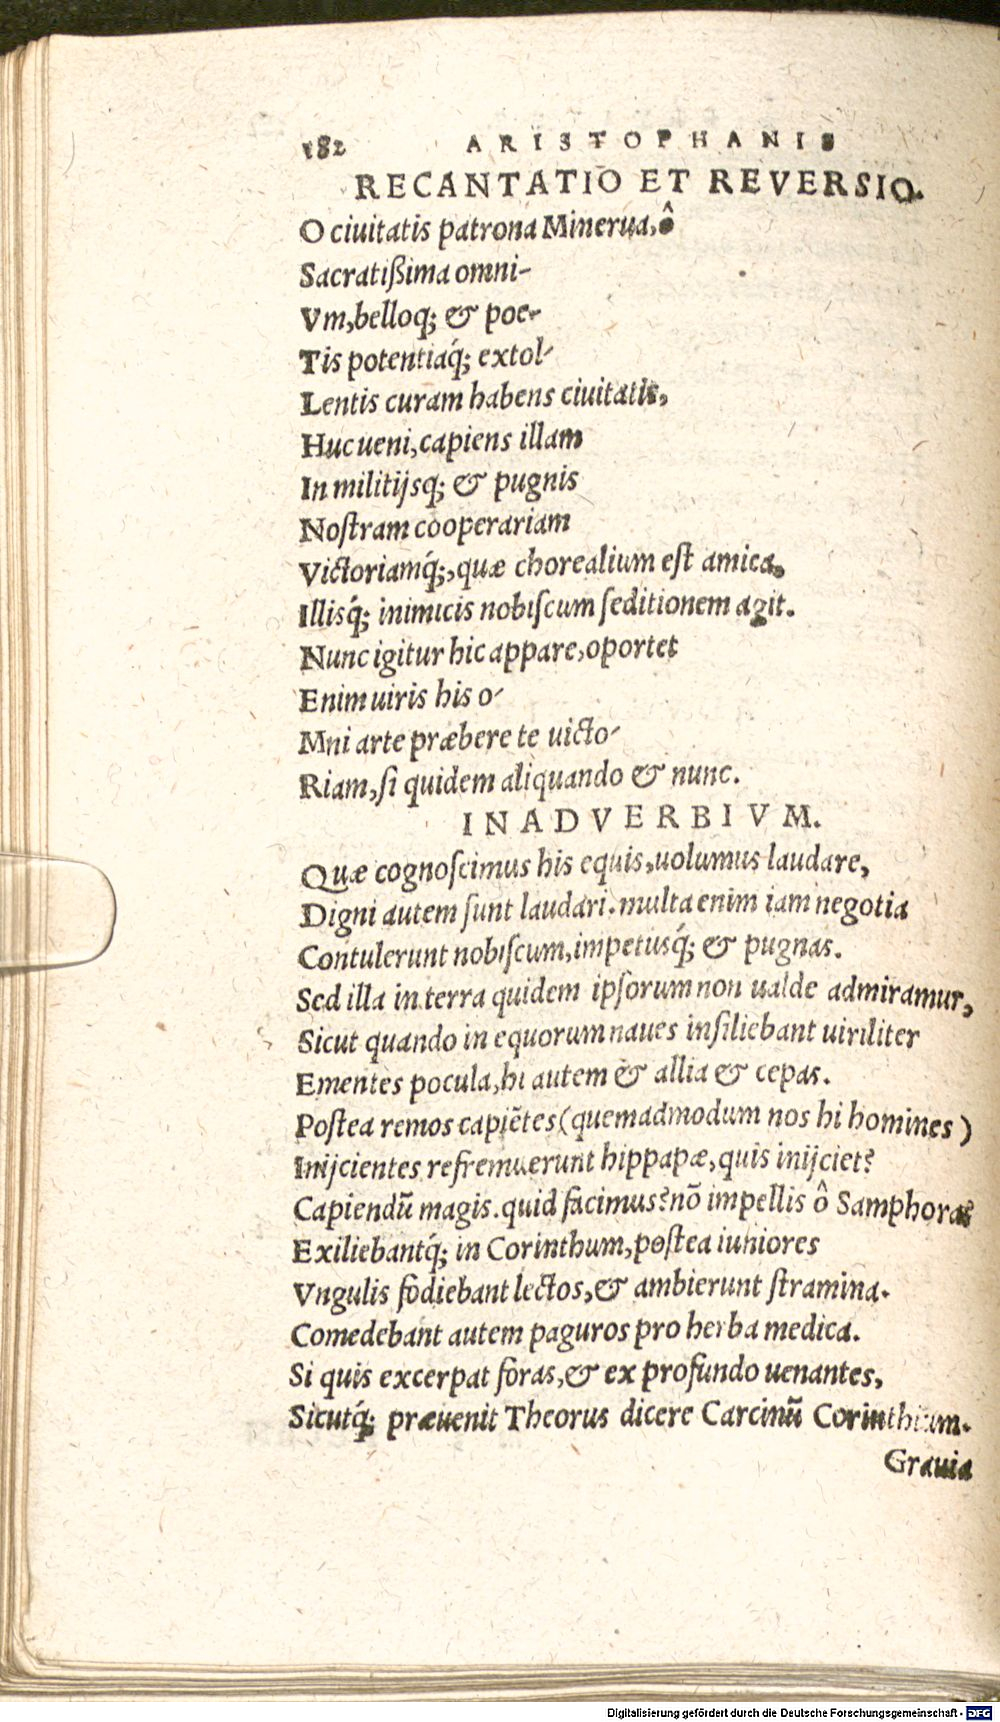 182 ARISTOPHANIS
RECANTATIO ET REVERSIO.
O ciuitatis patrona Minerua, ô
Sacratißima omni-
Vm, belloq; & poe-
Tis potentiaq́; extol-
Lentis curam habens ciuitatis,
Huc ueni, capiens illam
In militijsq; & pugnis
Nostram cooperariam
Victoriamq́;, quæ chorealium est amica,
Illisq́; inimicis nobiscum seditionem agit.
Nunc igitur hic appare, oportet
Enim uiris his o-
Mni arte præbere te uicto-
Riam, si quidem aliquando & nunc.
INADVERBIVM.
Quæ cognoscimus his equis, uolumus laudare,
Digni autem sunt laudari. multa enim iam negotia
Contulerunt nobiscum, impetusq́; & pugnas.
Sed illa in terra quidem ipsorum non ualde admiramur,
Sicut quando in equorum naues insiliebant uiriliter
Ementes pocula, hi autem & allia & cepas.
Postea remos capiẽtes (quemadmodum nos hi homines)
Inijcientes refremuerunt hippapæ, quis inijciet?
Capiendũ magis. quid facimus? nõ impellis ô Samphora?
Exiliebantq́; in Corinthum, postea iuniores
Vngulis fodiebant lectos, & ambierunt stramina.
Comedebant autem paguros pro herba medica.
Si quis excerpat foras, & ex profundo uenantes,
Sicutq́; præuenit Theorus dicere Carcinũ Corinthium.
Grauia
Digitalisierung gefördert durch die Deutsche Forschungsgemeinschaft - DFG